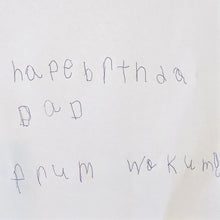 hapebrthda
DaD
frum wokum